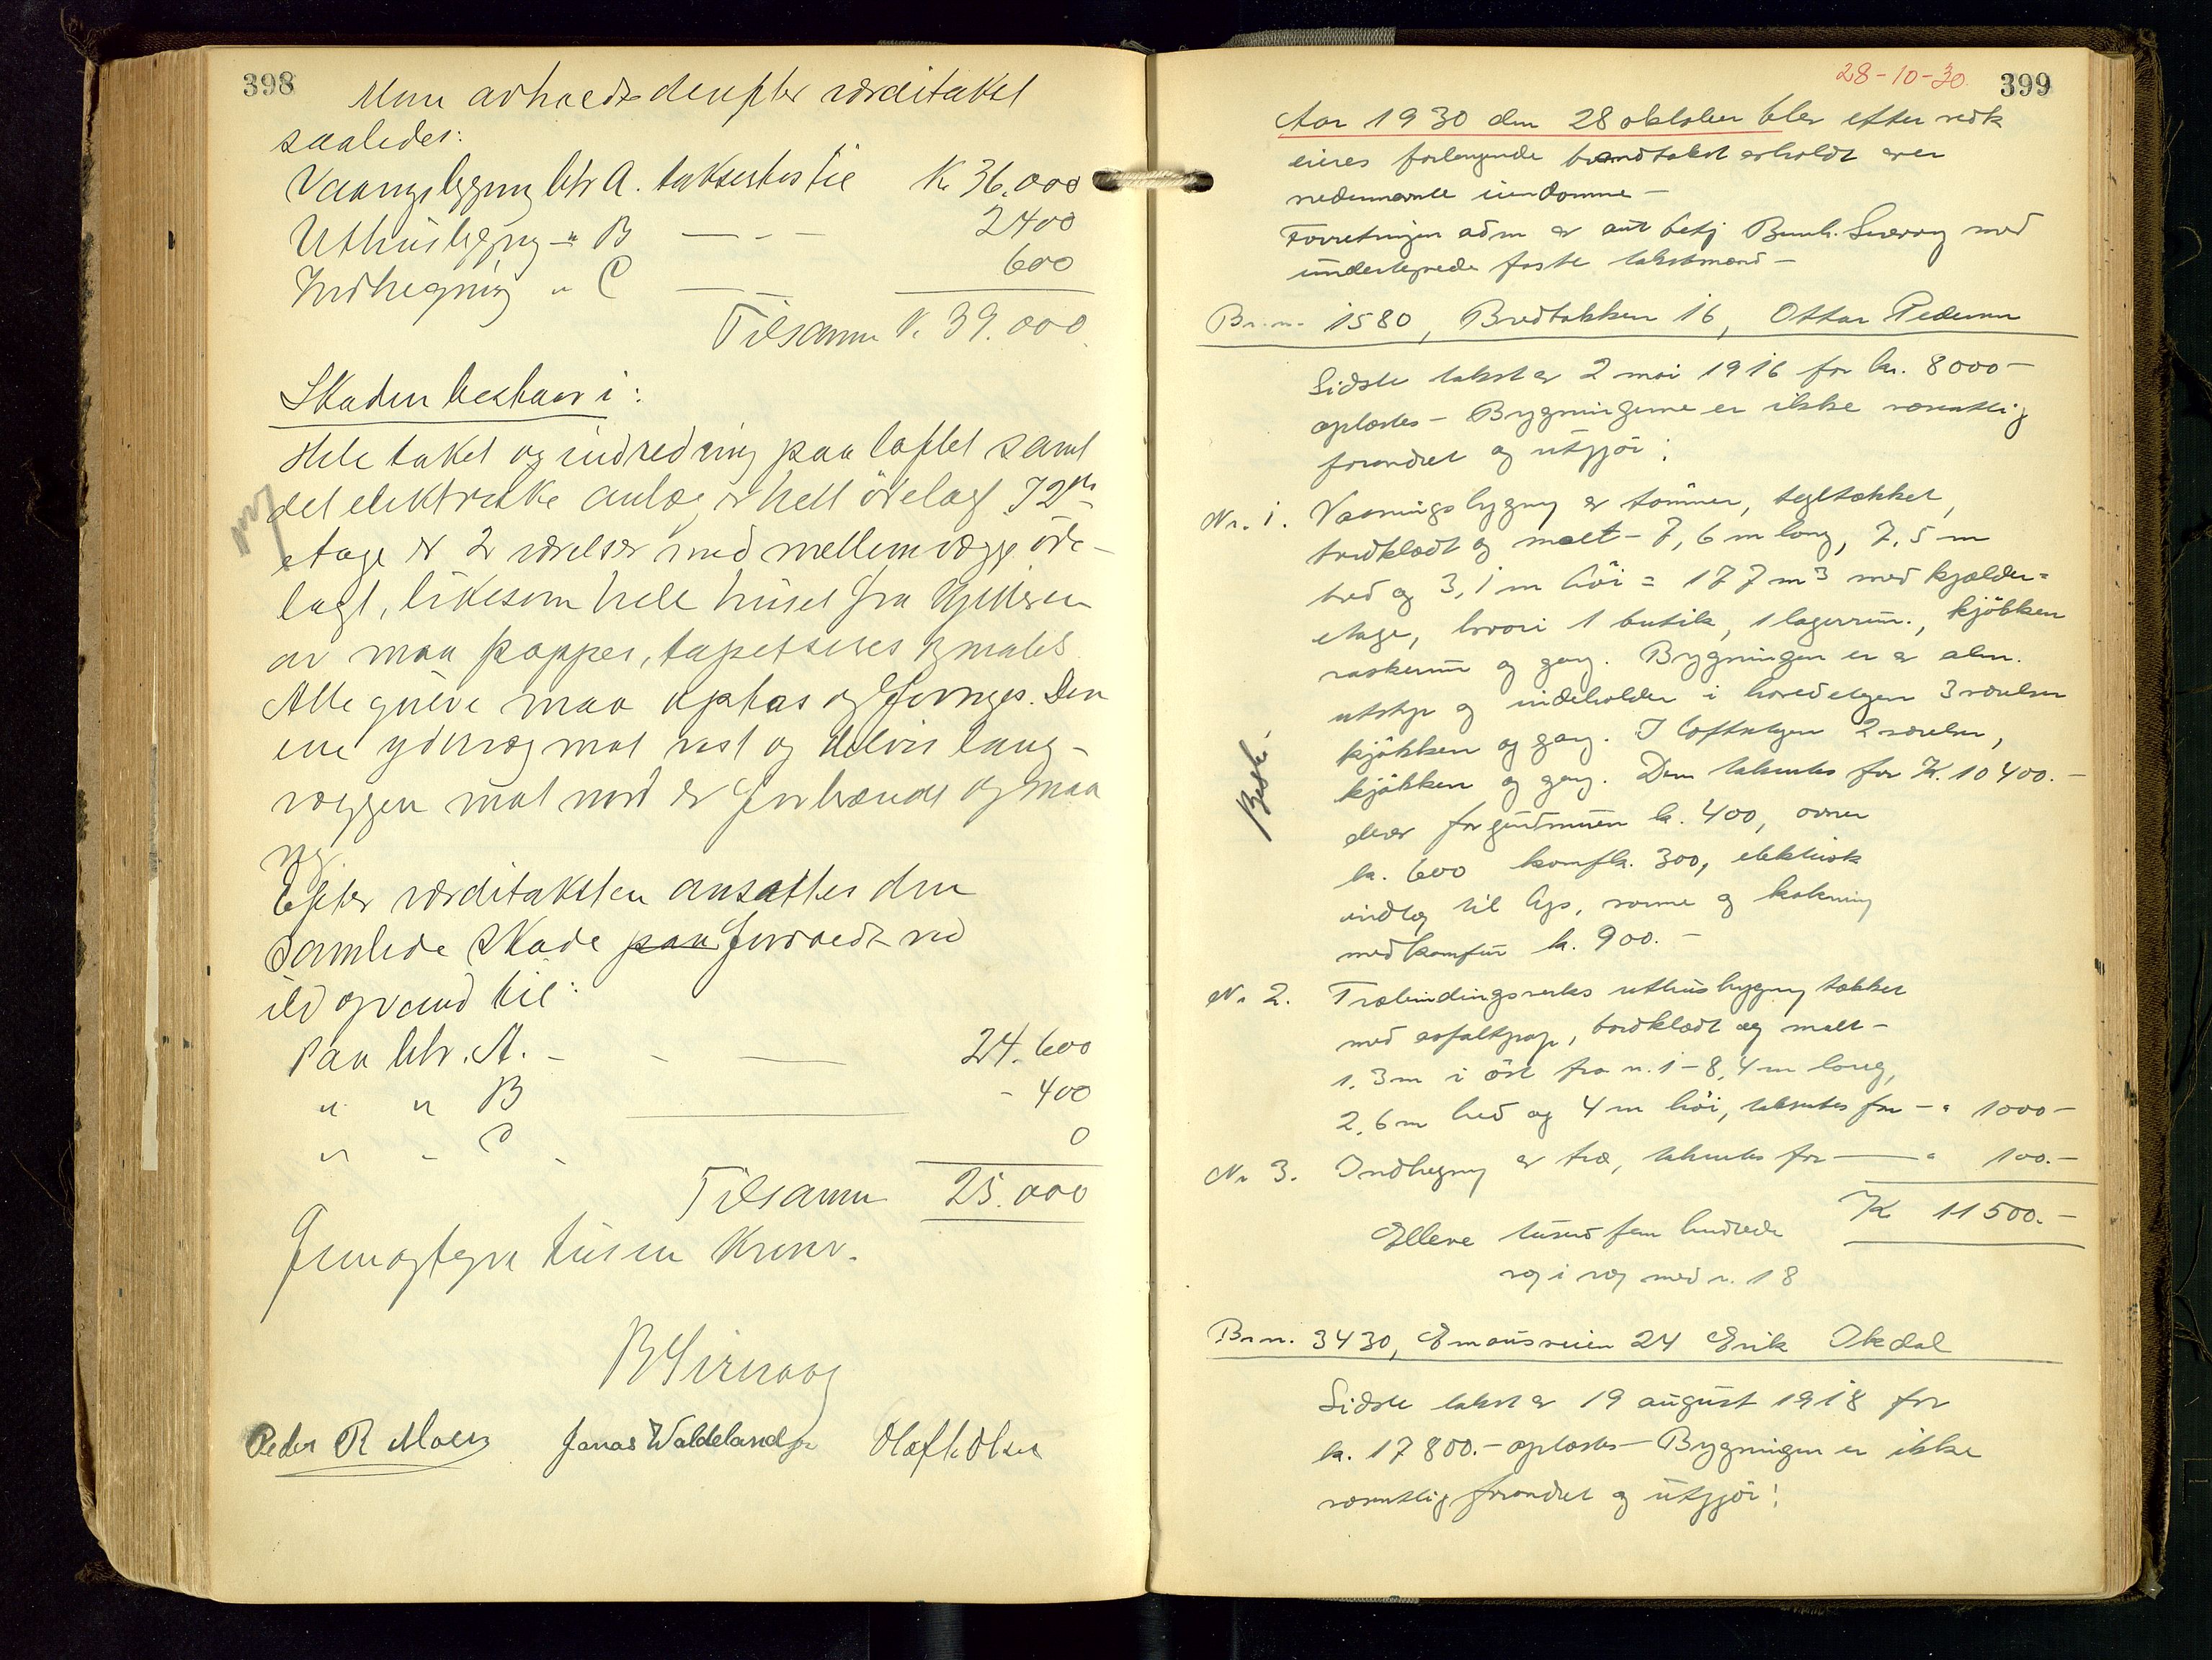 398
Man avholdt derefter værditakst
saaledes:
Vaaningsbygning litr A. taksertes til K 36.000
Uthusbygng - " B — - — 2400
Indhegning " C — — 600
Tilsamm K. 39.000
Skaden bestaar i:
Hele taket og indredning paa loftet samt
det elektriske anlæg er helt ödelagt. I 2den
etage er 2 værelser med mellemvægge öde-
lagt, likesom hele huset fra kjelleren
av maa pappes, tapetseres og males
Alle gulve maa optas og fornyes. Den
ene ydervæg mot vest og delvis lang-
væggen mot nord er forbrændt og maa
ny.
Efter værditaksten ansattes den
samlede skade paa forvoldt ved
ild og vand til:
Paa litr. A. - - — 24.600
" " B — - 400
" - C - 0
Tilsamm 25.000
Femogtyve tusen kroner.
B Svernoag
Peder R Moen Jonas Waldeland Olaf K. Olsen
28-10-30. 399
Aar 1930 den 28 oktober blev efter vedk
eieres forlangende brandtakst avholdt over
nedennævnte eiendomme -
Forretningen adm av aut betj. med
undertegnede faste takstmænd -
Br.n. 1580, Bredbakken 16, Ottar Pedersen
Sidste takst av 2 mai 1916 for kr. 8000 -
oplæstes - Bygningerne er ikke væsentlig
forandret og utgjör:
Nr. 1. Vaaningsbygning av tömmer, tegltækket,
bordklædt og malt - 7,6 m lang, 7,5 m
bred og 3,1 m höi = 177 m3 med kjælder=
etage, hvori 1 butik, 1 lagerrum., kjökken
vaskerum og gang. Bygningen er av alm.
utstyr og indeholder i hovedetagen 3 værelser
kjökken og gang. I loftetagen 2 værelser,
Besk.
kjökken og gang. Den takseres for K. 10400. -
derav for grundmuren kr. 400, ovner
kr. 600 komf kr. 300, elektrisk
indlæg til lys, varme og kokning
med komfur kr. 900. -
Nr 2. Træbindingsverks uthusbygning tækket
med asfaltpap, bordklædt og malt -
1,3 m i öst fra n. 1 - 8,4 m lang,
2,6 m bred og 4 m höi, takseres for - " 1000 -
Nr 3. Indhegning av træ, takseres for — " 100. -
K 11500. -
Elleve tusen fem hundrede
væg i væg med n. 18
Br.n. 3430, Emausveien 24 Erik Okdal
Sidste takst av 19 august 1918 for
kr. 17800. - oplæstes - Bygningen er ikke
væsentlig forandret og utgjör: